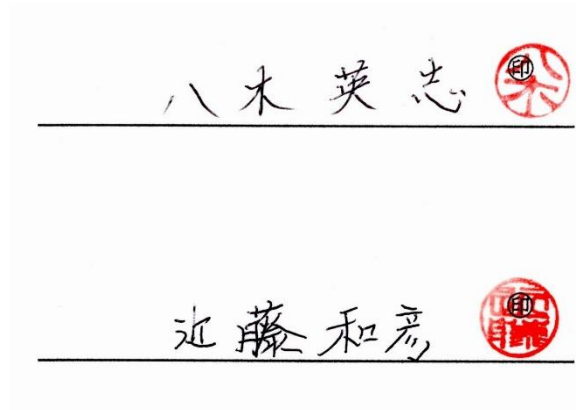 八木 英志 ㊞
近藤 和彦 ㊞